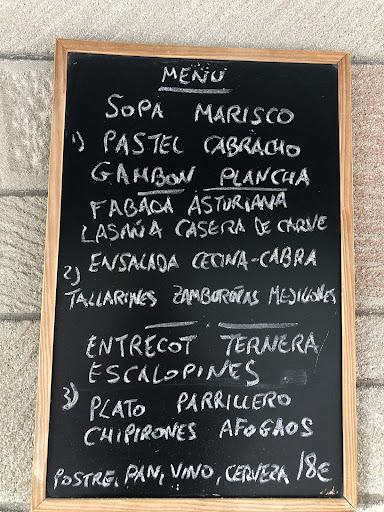 MENU
SOPA MARISCO
1) PASTEL CABRACHO
GAMBON PLANCHA
FABADA ASTURIANA
LASAÑA CASERA DE CARNE
2) ENSALADA CECINA-CABRA
TALLARINES ZAMBURIÑAS MEJILLONES
ENTRECOT TERNERA
ESCALOPINES
3) PLATO PARRILLERO
CHIPIRONES AFOGAOS
POSTRE, PAN, VINO, CERVEZA 18€